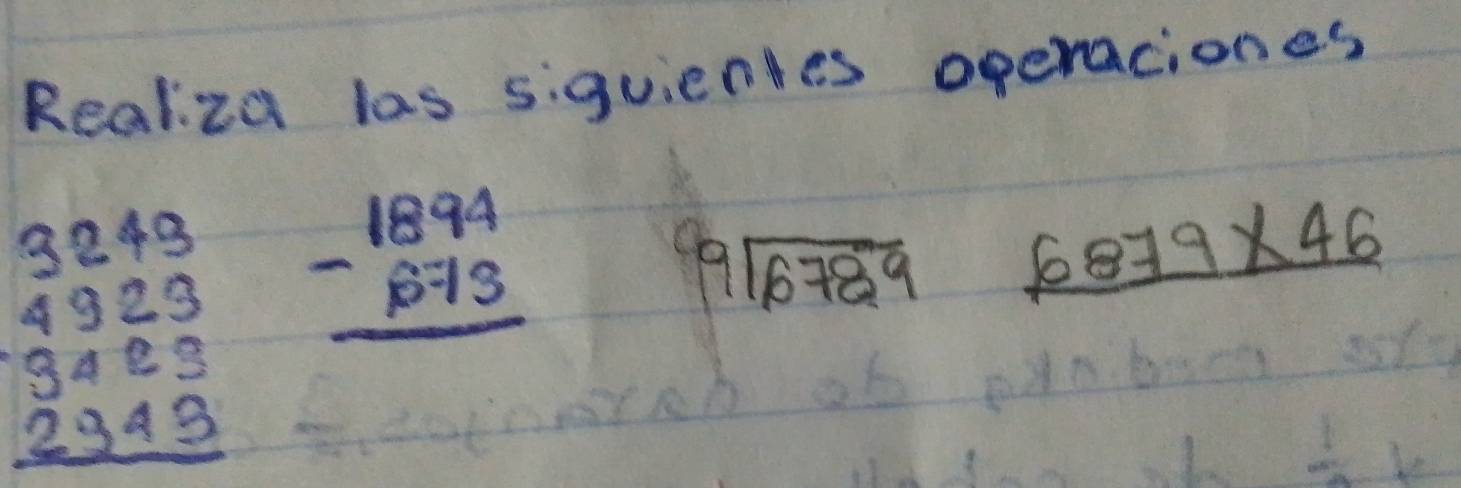 Realiza las siguientes operaciones
3243
4323
3423
2343
1894
- 673
9 6789
6879 X 46